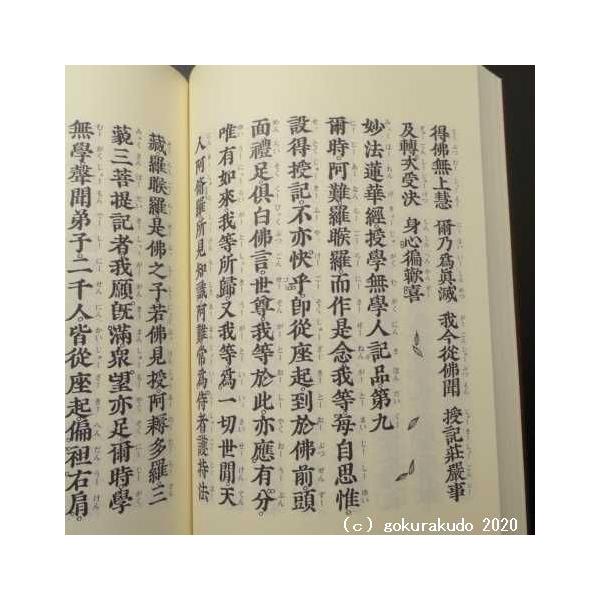 得佛無上慧　爾乃爲眞滅　我今從佛聞　授記莊嚴事
及轉次受決　身心徧歡喜
妙法蓮華經授學無學人記品第九
爾時阿難羅睺羅而作是念我等每自思惟
設得授記不亦快乎即從座起到於佛前頭
面禮足俱白佛言世尊我等於此亦應有分
唯有如來我等所歸又我等爲一切世閒天
人阿脩羅所見知識阿難常爲侍者護持法
藏羅睺羅是佛之子若佛見授阿耨多羅三
藐三菩提記者我願既滿衆望亦足爾時學
無學聲聞弟子二千人皆從座起偏袒右肩
（c）gokurakudo 2020